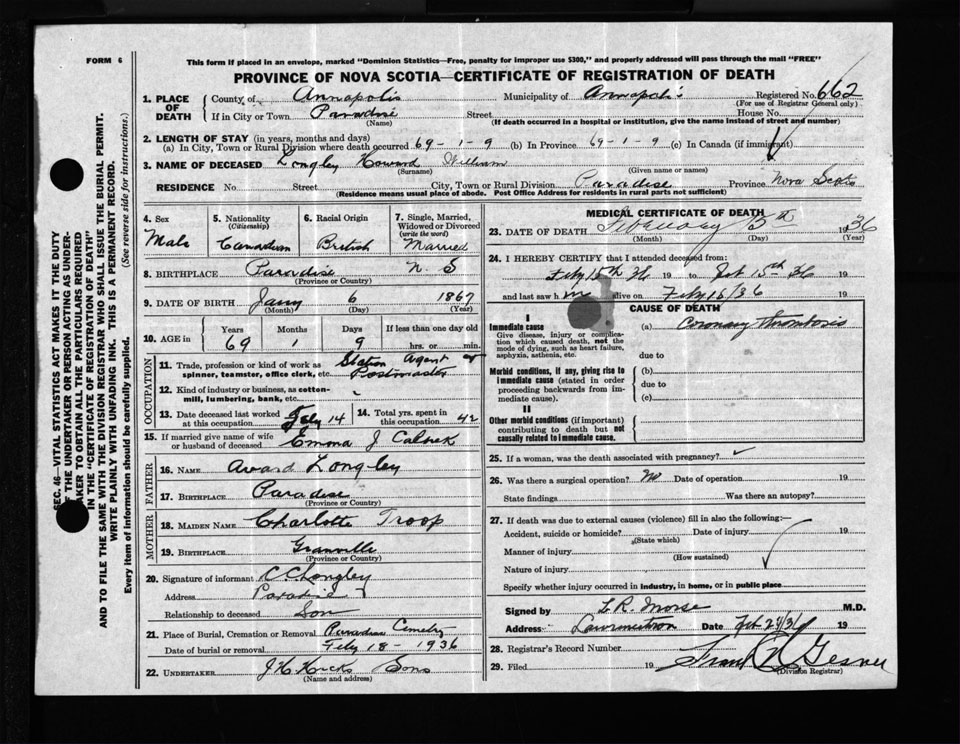 FORM 6
This form if placed in an envelope, marked "Dominion Statistics—Free, penalty for improper use $300," and properly addressed will pass through the mail "FREE"
PROVINCE OF NOVA SCOTIA—CERTIFICATE OF REGISTRATION OF DEATH
SEC. 46—VITAL STATISTICS ACT MAKES IT THE DUTY
OF THE UNDERTAKER OR PERSON ACTING AS UNDER-
TAKER TO OBTAIN ALL THE PARTICULARS REQUIRED
IN THE "CERTIFICATE OF REGISTRATION OF DEATH"
AND TO FILE THE SAME WITH THE DIVISION REGISTRAR WHO SHALL ISSUE THE BURIAL PERMIT.
WRITE PLAINLY WITH UNFADING INK. THIS IS A PERMANENT RECORD.
Every item of information should be carefully supplied. (See reverse side for instructions.)
1. PLACE OF DEATH
County of Annapolis Municipality of Annapolis Registered No. 662
(For use of Registrar General only)
If in City or Town Paradise Street House No.
(Name) (If death occurred in a hospital or institution, give the name instead of street and number)
2. LENGTH OF STAY (in years, months and days)
(a) In City, Town or Rural Division where death occurred 69-1-9 (b) In Province 69-1-9 (c) In Canada (if immigrant)
3. NAME OF DECEASED Longley Howard William
(Surname) (Given name or names)
RESIDENCE No Street City, Town or Rural Division Paradise Province Nova Scotia
(Residence means usual place of abode. Post Office Address for residents in rural parts not sufficient)
4. Sex Male
5. Nationality (Citizenship) Canadian
6. Racial Origin British
7. Single, Married, Widowed or Divorced (write the word) Married
8. BIRTHPLACE Paradise N S
(Province or Country)
9. DATE OF BIRTH Jany 6 1867
(Month) (Day) (Year)
10. AGE in Years 69 Months 1 Days 9 If less than one day old hrs. or min.
OCCUPATION
11. Trade, profession or kind of work as spinner, teamster, office clerk, etc. Station Agent & Postmaster
12. Kind of industry or business, as cotton-mill, lumbering, bank, etc.
13. Date deceased last worked at this occupation Feby 14
14. Total yrs. spent in this occupation 42
15. If married give name of wife or husband of deceased Emma J
FATHER
16. NAME Avard Longley
17. BIRTHPLACE Paradise
(Province or Country)
MOTHER
18. MAIDEN NAME Charlotte Troop
19. BIRTHPLACE Granville
(Province or Country)
20. Signature of informant C C Longley
Address Paradise
Relationship to deceased Son
21. Place of Burial, Cremation or Removal Paradise Cemetry
Date of burial or removal Feby 18-1936
22. UNDERTAKER J H Hicks Sons
(Name and address)
MEDICAL CERTIFICATE OF DEATH
23. DATE OF DEATH February 15th 1936
(Month) (Day) (Year)
24. I HEREBY CERTIFY that I attended deceased from:
Feby 15th 36 19 to Feb 15th 36 19
and last saw him alive on Feby 15/36 19
CAUSE OF DEATH
I
Immediate cause
Give disease, injury or complication which caused death, not the mode of dying, such as heart failure, asphyxia, asthenia, etc.
(a) Coronary Thrombosis
due to
Morbid conditions, if any, giving rise to immediate cause (stated in order proceeding backwards from immediate cause).
(b)
due to
(c)
II
Other morbid conditions (if important) contributing to death but not causally related to immediate cause.
25. If a woman, was the death associated with pregnancy?
26. Was there a surgical operation? No Date of operation 19
State findings Was there an autopsy?
27. If death was due to external causes (violence) fill in also the following:—
Accident, suicide or homicide? Date of injury 19
(State which)
Manner of injury
(How sustained)
Nature of injury
Specify whether injury occurred in industry, in home, or in public place
Signed by L. R. Morse M.D.
Address Lawrencetown Date Feb 24/36 19
28. Registrar's Record Number
29. Filed 19 Frank R Gesner
(Division Registrar)